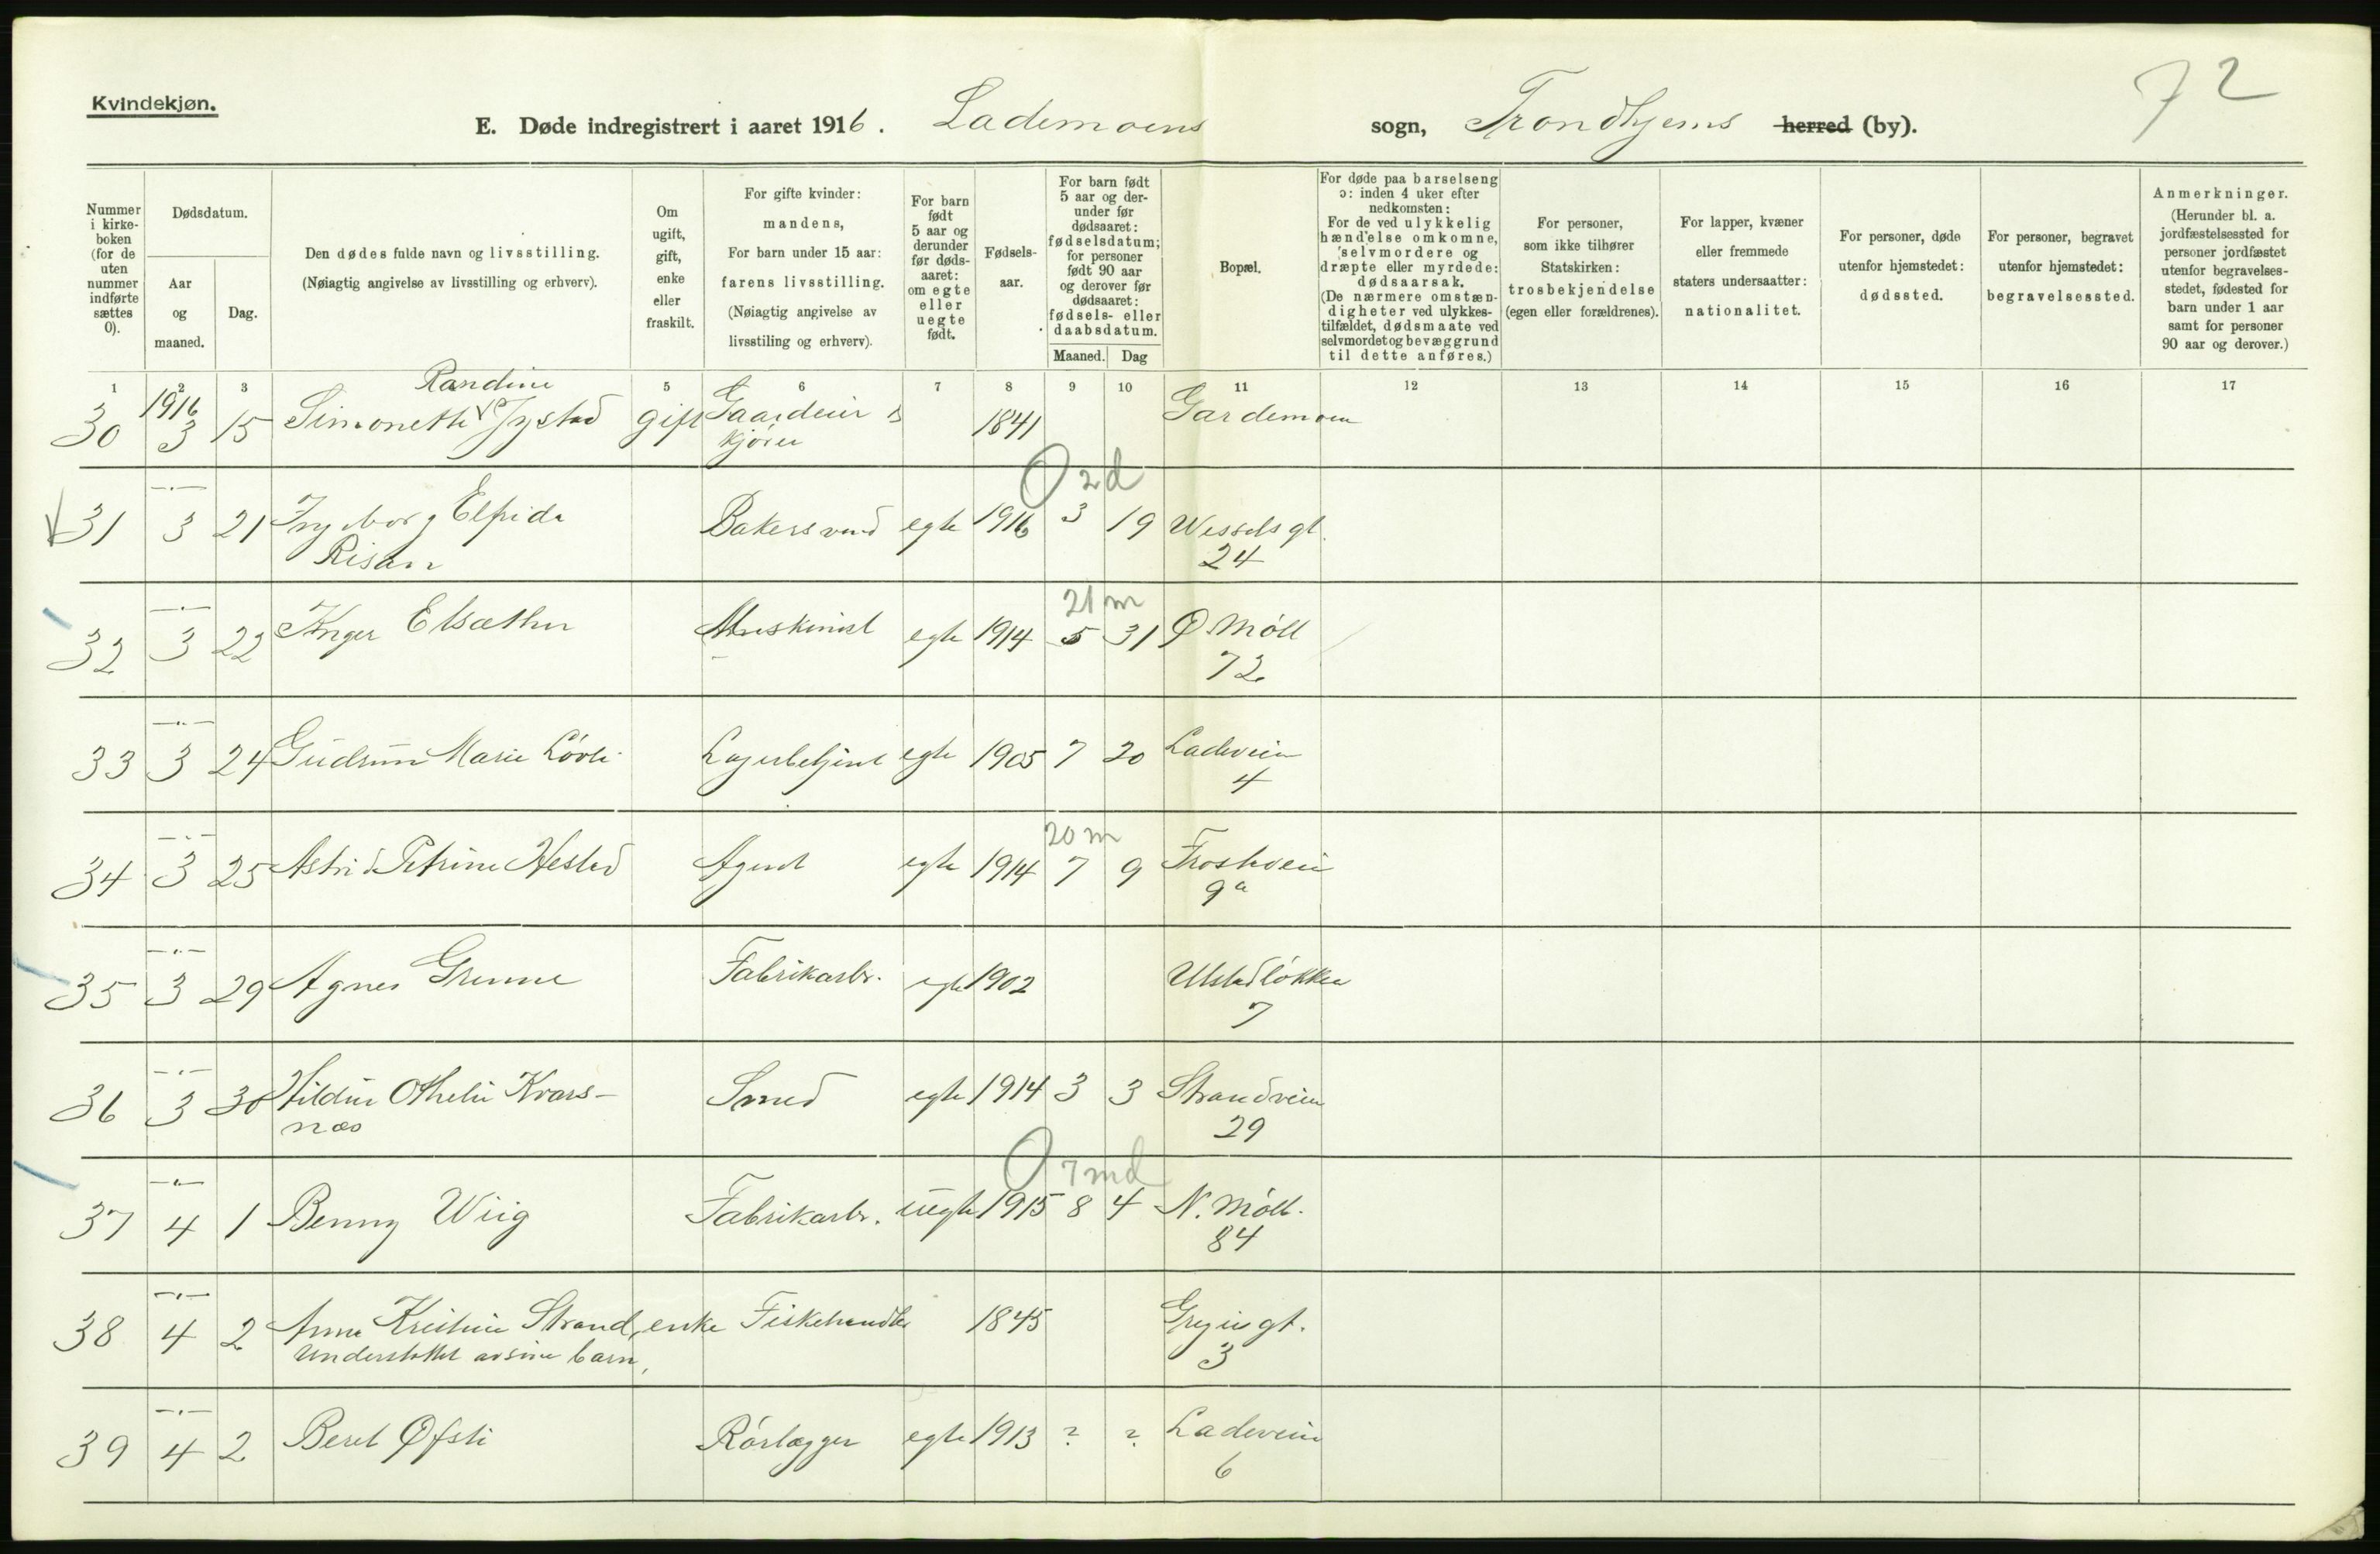 72
Kvindekjøn.
E. Døde indregistrert i aaret 1916. Lademoens sogn, Trondhjems herred (by).
Nummer i kirke-boken (for de uten nummer indførte sættes 0).
Dødsdatum.
Aar og maaned.
Dag.
Den dødes fulde navn og livsstilling.
(Nøiagtig angivelse av livsstilling og erhverv).
Om ugift, gift, enke eller fraskilt.
For gifte kvinder: mandens,
For barn under 15 aar: farens livsstilling.
(Nøiagtig angivelse av livsstiling og erhverv).
For barn født 5 aar og derunder før døds-aaret: om egte eller uegte født.
Fødsels-aar.
For barn født 5 aar og der-under før dødsaaret: fødselsdatum; for personer født 90 aar og derover før dødsaaret: fødsels- eller daabsdatum.
Maaned. Dag
Bopæl.
For døde paa barselseng ɔ: inden 4 uker efter nedkomsten:
For de ved ulykkelig hændelse omkomne, selvmordere og dræpte eller myrdede: dødsaarsak.
(De nærmere omstæn-digheter ved ulykkes-tilfældet, dødsmaate ved selvmordet og bevæggrund til dette anføres.)
For personer, som ikke tilhører Statskirken: trosbekjendelse (egen eller forældrenes).
For lapper, kvæner eller fremmede staters undersaatter: nationalitet.
For personer, døde utenfor hjemstedet: dødssted.
For personer, begravet utenfor hjemstedet: begravelsessted.
Anmerkninger.
(Herunder bl. a. jordfæstelsessted for personer jordfæstet utenfor begravelses-stedet, fødested for barn under 1 aar samt for personer 90 aar og derover.)
1 2 3 5 6 7 8 9 10 11 12 13 14 15 16 17
Randine
1916
30 3 15 Simonette Jystad gift Gaardeier & 1841 Gardemoen
kjører
0 2 d
31 3 21 Ingeborg Elfrida Bakersvend egte 1916 3 19 Wesselsgt.
Risan 24
21 m
32 3 22 Inger Elsæther Maskinist egte 1914 5 31 Ø. Møll
72
33 3 24 Gudrun Marie Løvli Lagerbetjent egte 1905 7 20 Ladeveien
4
20 m
34 3 25 Astrid Petrine Hestad Agent egte 1914 7 9 Frostaveien
9a
35 3 29 Agnes Grenne Fabrikarb. egte 1902 Ulstadløkken
7
36 3 30 Hildur Othelie Kvars- Smed egte 1914 3 3 Strandveien
næs 29
0 7 md
37 4 1 Benny Wiig Fabrikarb. uegte 1915 8 4 N. Møll.
84
38 4 2 Anna Kristine Strand, enke Fiskehandler 1845 gt.
Understøttet av sine barn, 3
39 4 2 Beret Øfsti Rørlægger egte 1913 ? ? Ladeveien
6